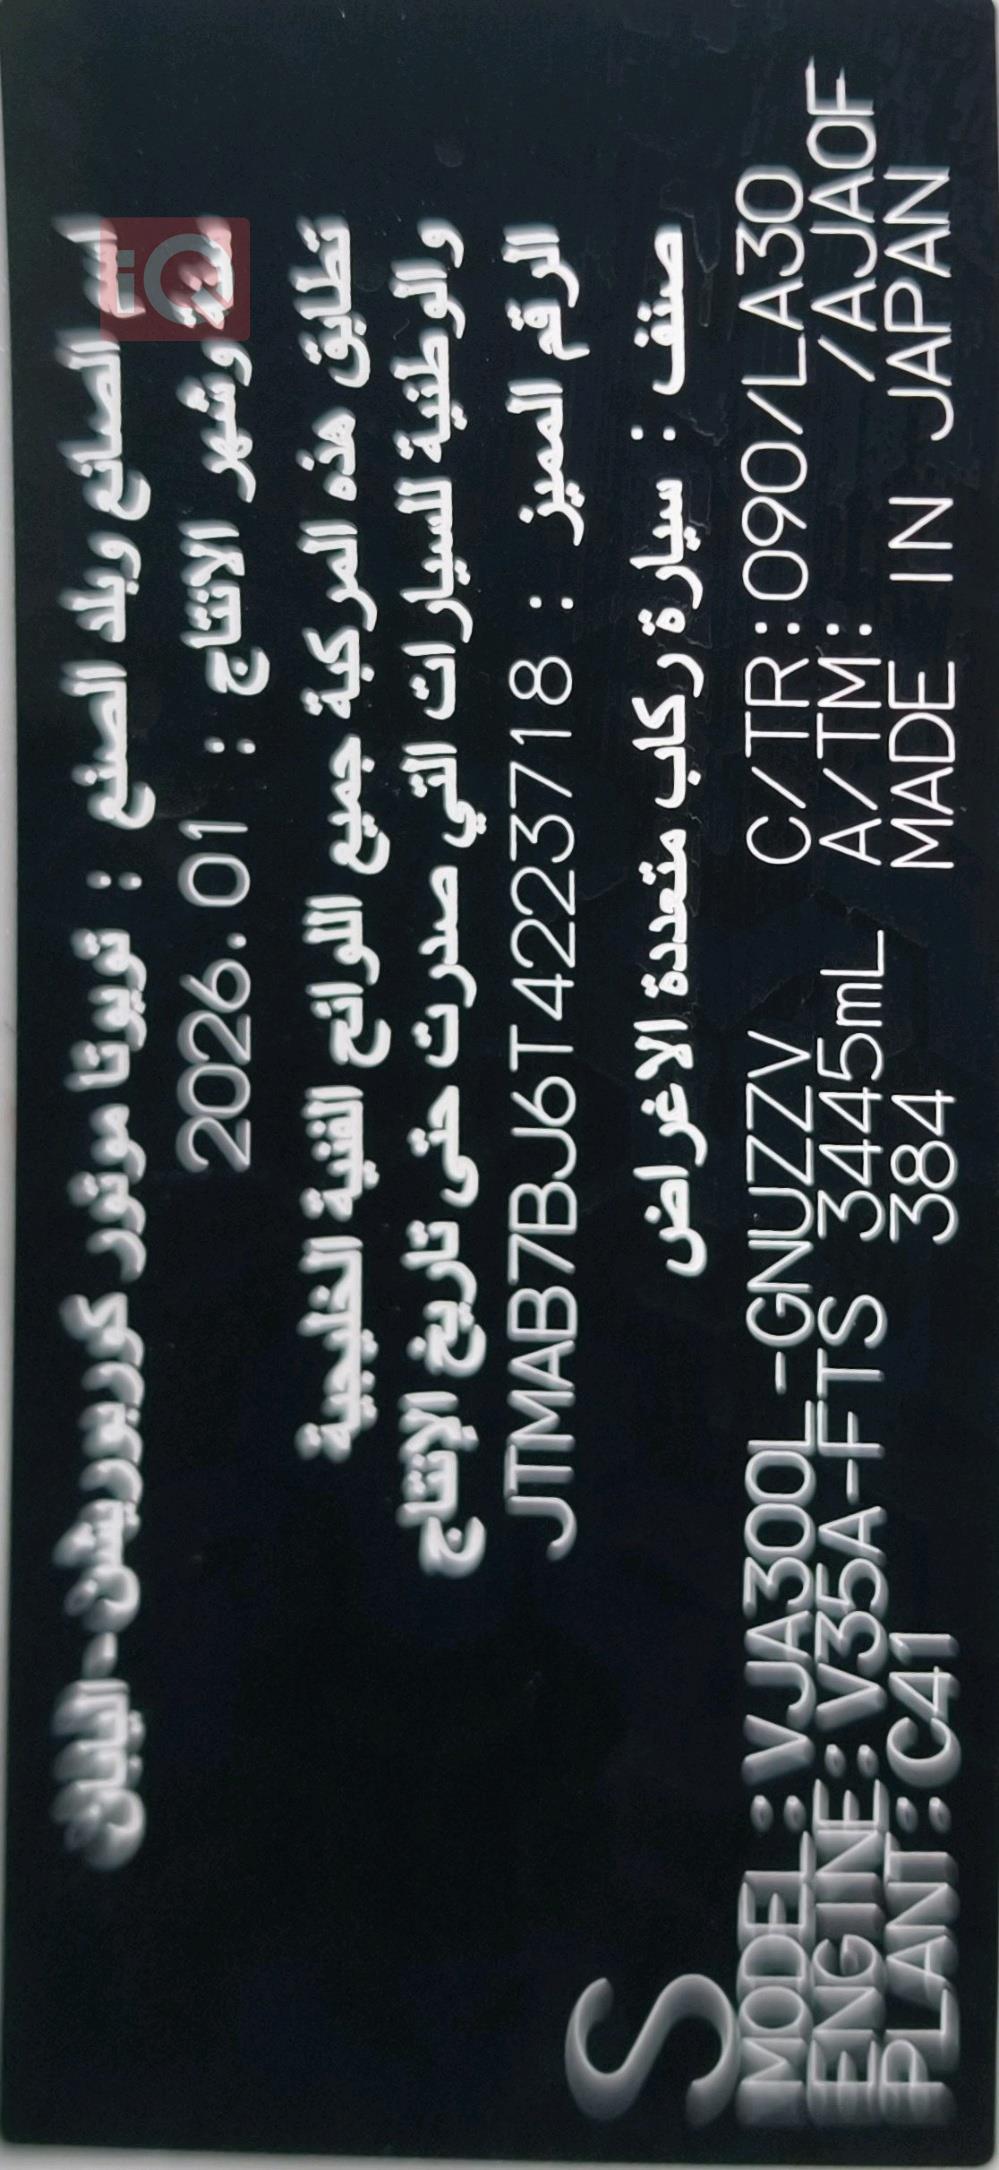 اسم الصانع وبلد الصنع : تويوتا موتور كوربوريشن-اليابان
سنة وشهر الانتاج : 2026.01
تطابق هذه المركبة جميع اللوائح الفنية الخليجية
والوطنية للسيارات التي صدرت حتى تاريخ الإنتاج
الرقم المميز : JTMAB7BJ6T4223718
صنف : سيارة ركاب متعددة الاغراض
S
MODEL:VJA300L-GNUZZV C/TR:090/LA30
ENGINE:V35A-FTS 3445mL A/TM: /AJA0F
PLANT:C41 384 MADE IN JAPAN
iQ